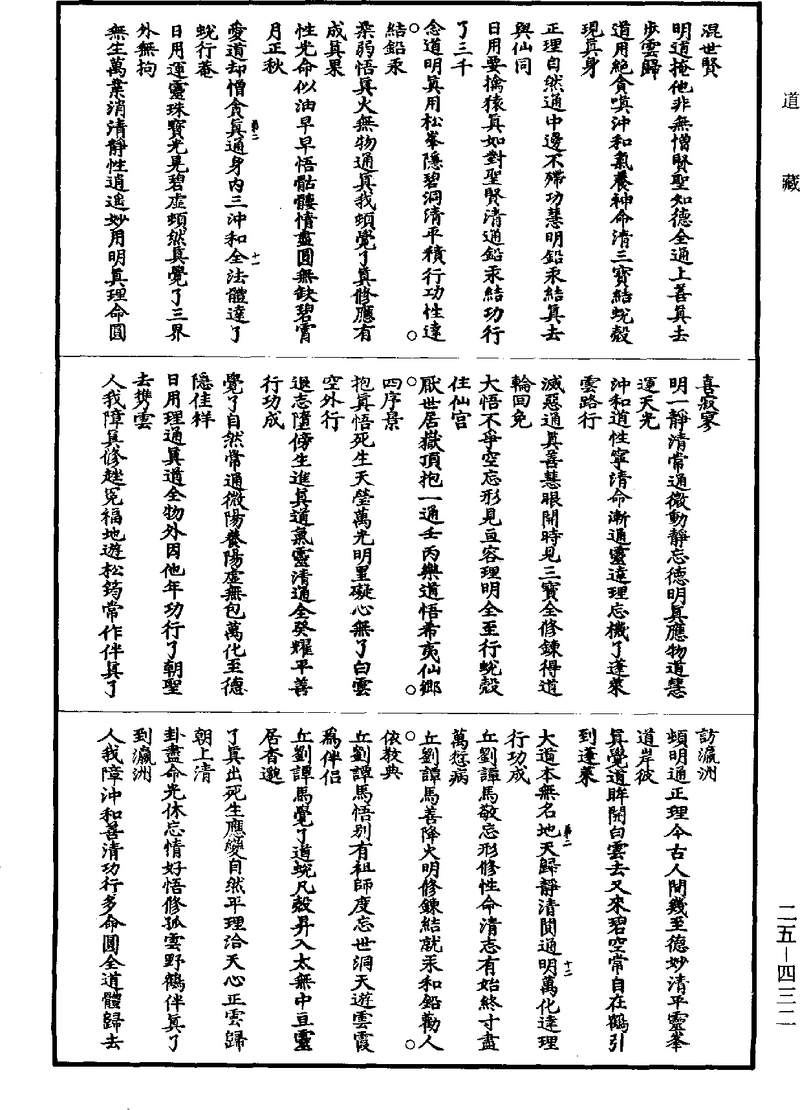 道藏
混世賢
明道掩他非無憎賢聖知德全通上善真去
步雲歸
道用絕貪嗔沖和氣養神命清三寶結蛻殼
現真身
正理自然通中邊不殢功慧明鉛汞結真去
與仙同
日用要擒猿真如對聖賢清通鉛汞結功行
了三千
念道明真用松峯隱碧洞清平積行功性達
○ ○
結鉛汞
柔弱悟真火無物通真我頓覺了真修應有
成真果
性光命似油早早悟骷髏情盡圓無缺碧霄
月正秋
愛道却憎貪真通身內三沖和全法體達了
第二 十一
蛻行菴
日用運靈珠寶光晃碧虛頓然真覺了三界
外無拘
無生萬業消清靜性逍遙妙用明真理命圓
喜寂寥
明一靜清常通微動靜忘德明真應物道慧
運天光
沖和道性寧清命漸通靈達理忘機了蓬萊
雲路行
滅惡通真善慧眼開時見三寶全修鍊得道
輪回免
大悟不爭空忘形見亘容理明全至行蛻殼
住仙宮
厭世居嶽頂抱一通壬丙樂道悟希夷仙鄉
○ ○
四序景
抱真悟死生天瑩萬光明里礙心無了白雲
空外行
退志隨傍生進真道氣靈清通全癸耀平善
行功成
覺了自然常通微陽養陽虛無包萬化至德
隱佳祥
日用理通真道全物外因他年功行了朝聖
去携雲
人我障真修越冤福地遊松筠常作伴真了
訪瀛洲
頓明通正理今古人間幾至德妙清平靈峯
道岸彼
真覺道眸開白雲去又來碧空常自在鶴引
到蓬萊
大道本無名地天歸靜清関通明萬化達理
第二 十二
行功成
丘劉譚馬敬忘形修性命清志有始終寸盡
萬愆病
丘劉譚馬善降火明修鍊結就汞和鉛勸人
○ ○
依教典
丘劉譚馬悟别有祖師度忘世洞天遊雲霞
為伴侶
丘劉譚馬覺了道蛻凡殼昇入太無中亘靈
居杳邈
了真出死生應變自然平理洽天心正雲歸
朝上清
卦盡命光休忘情好悟修孤雲野鶴伴真了
到瀛洲
人我障沖和善清功行多命圓全道體歸去
二五—四三二